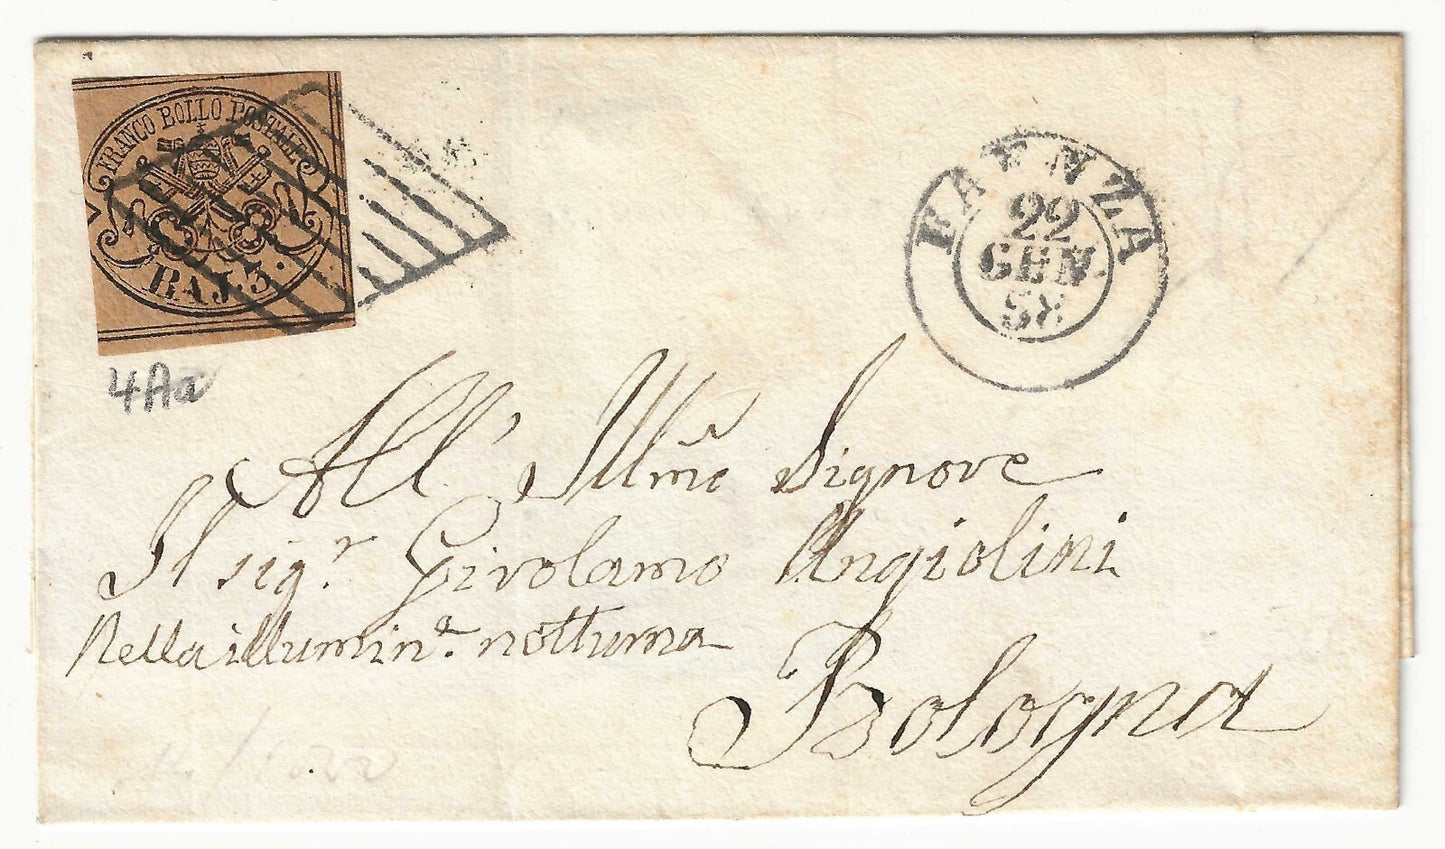 FRANCO BOLLO POSTALE
BAJ. 3.
4Aa
FAENZA
22
GEN
58
All' Illmo Signore
Il sigr. Girolamo Angiolini
Nella illumina. notturna
Bologna